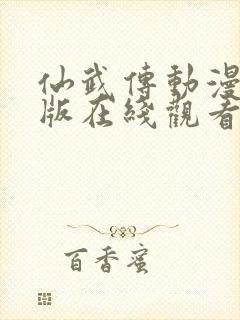 仙武傳動漫
版在綫觀看
百香蜜